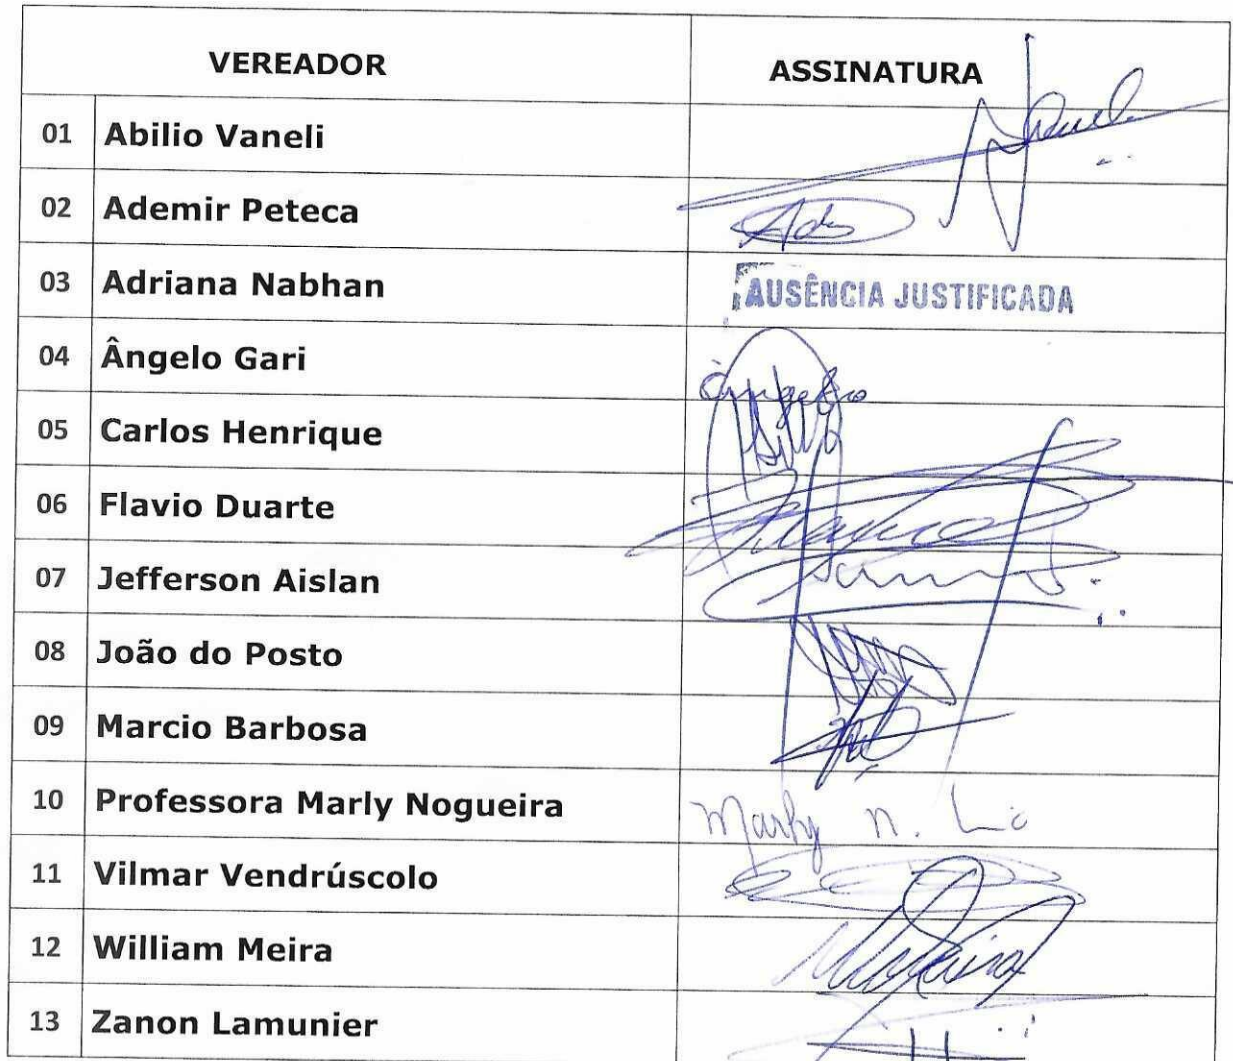 VEREADOR ASSINATURA
01 Abilio Vaneli
02 Ademir Peteca
03 Adriana Nabhan AUSÊNCIA JUSTIFICADA
04 Ângelo Gari Ângelo
05 Carlos Henrique
06 Flavio Duarte
07 Jefferson Aislan
08 João do Posto
09 Marcio Barbosa
10 Professora Marly Nogueira Marly n.
11 Vilmar Vendrúscolo
12 William Meira
13 Zanon Lamunier